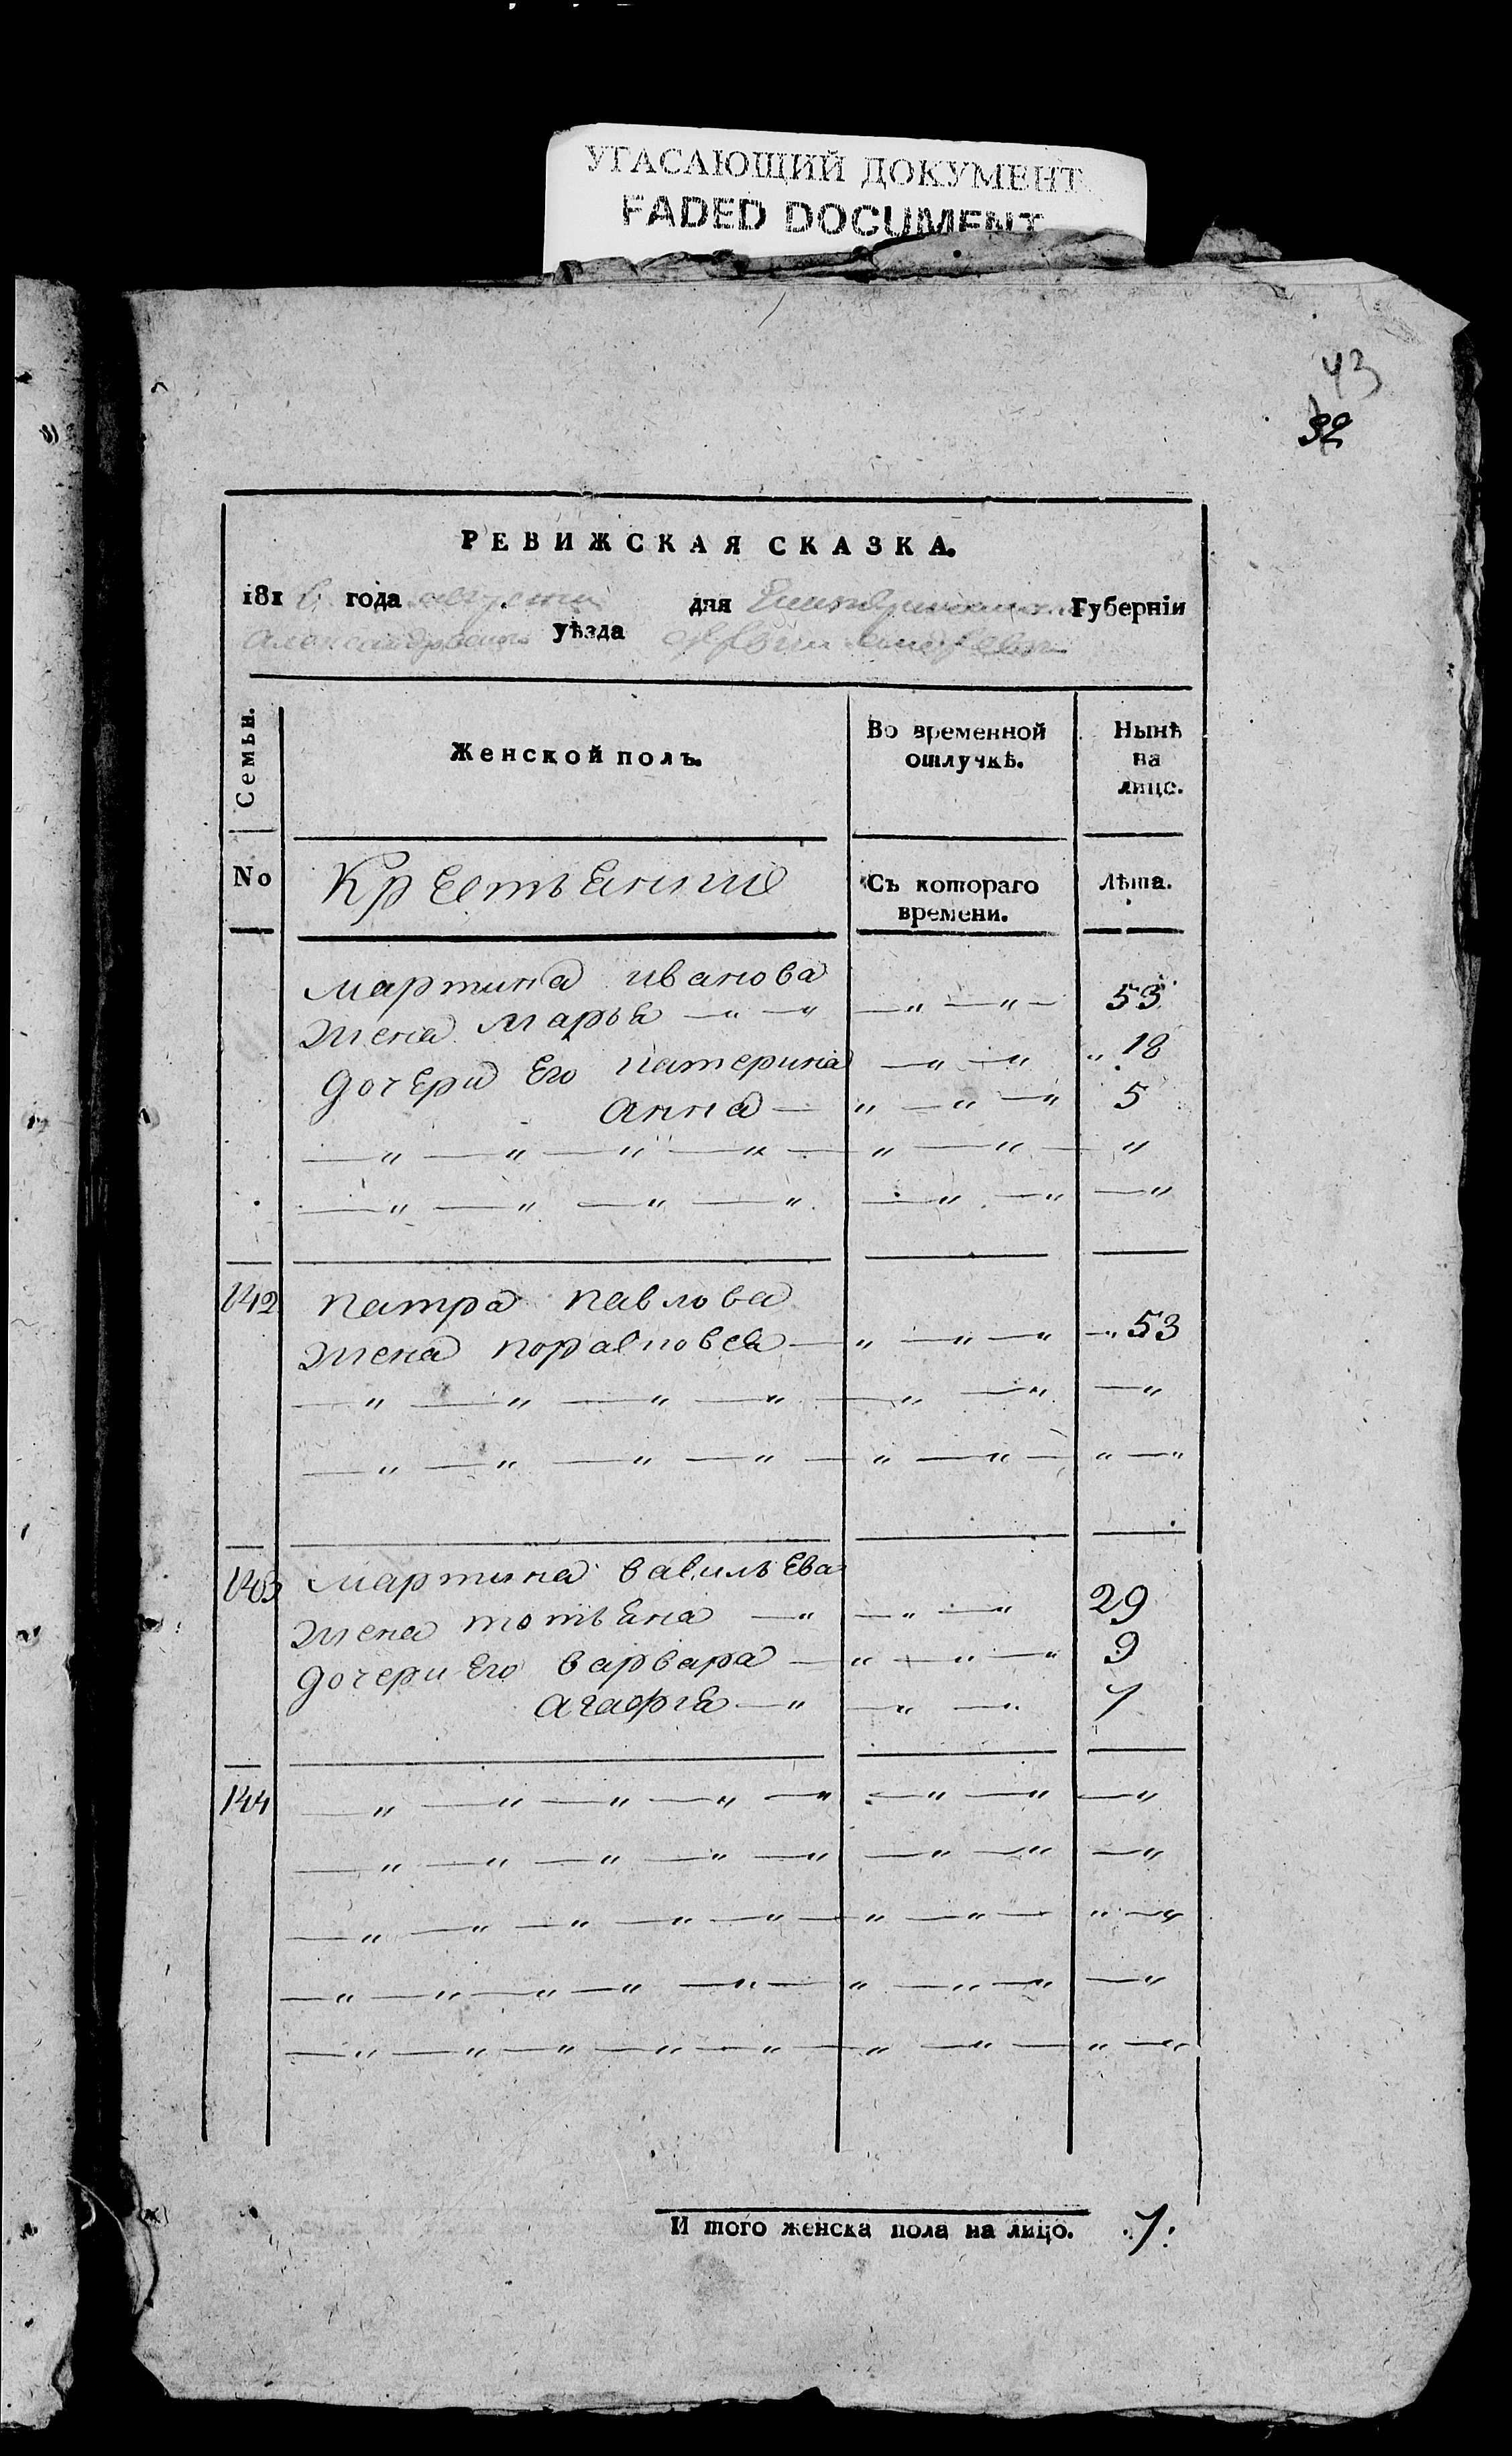 УГАСАЮЩИЙ ДОКУМЕНТ
FADED DOCUMENT
43
32
РЕВИЖСКАЯ СКАЗКА.
1816 года августа дня Екатеринославской Губерніи
Александровскаго уѣзда
Семьи.
Женской полъ.
Во временной отлучкѣ.
Нынѣ на лице.
No
Крестьянние
Съ котораго времени.
Лѣта.
мартина иванова
жена марья — " — " — " — " — 53
дочери Его катерина — " — " " 18
анна — " — " — " 5
— " — " — " — " — " — " — "
— " — " — " — " — " — " — "
142 петра павлова
жена — " — " — " — " 53
— " — " — " — " — " — " — "
— " — " — " — " — " — " — " — "
143 мартина васильева
жена тотьяна — " — " — " 29
дочери Его варвара — " — " — " 9
агафия — " — " — " 7
144 — " — " — " — " — " — " — " — "
— " — " — " — " — " — " — " — "
— " — " — " — " — " — " — " — " — "
— " — " — " — " — " — " — " — " — "
— " — " — " — " — " — " — " — " — "
И того женска пола на лицо. 7